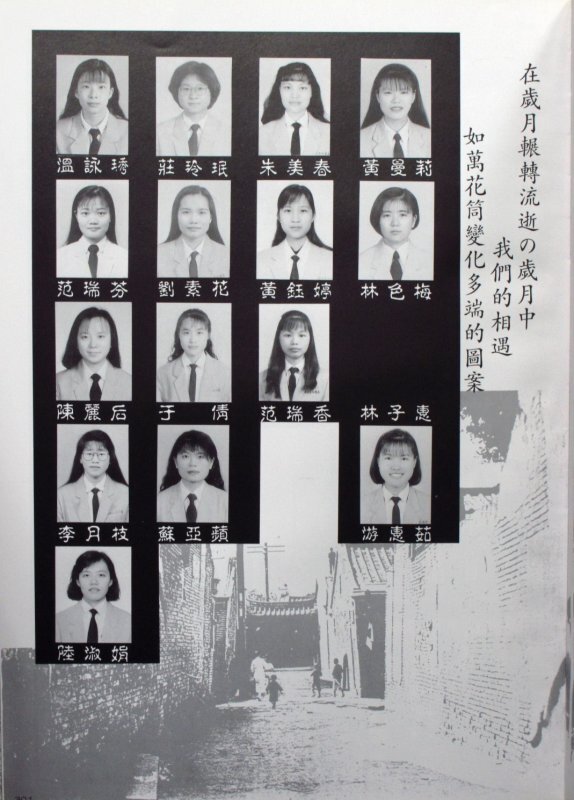 在歲月輾轉流逝の歲月中
我們的相遇
如萬花筒變化多端的圖案
溫詠琇 莊玲珉 朱美春 黃曼莉
范瑞芬 劉素花 黃鈺婷 林色梅
陳麗后 于倩 范瑞香 林子惠
李月枝 蘇亞蘋 游惠茹
陸淑娟